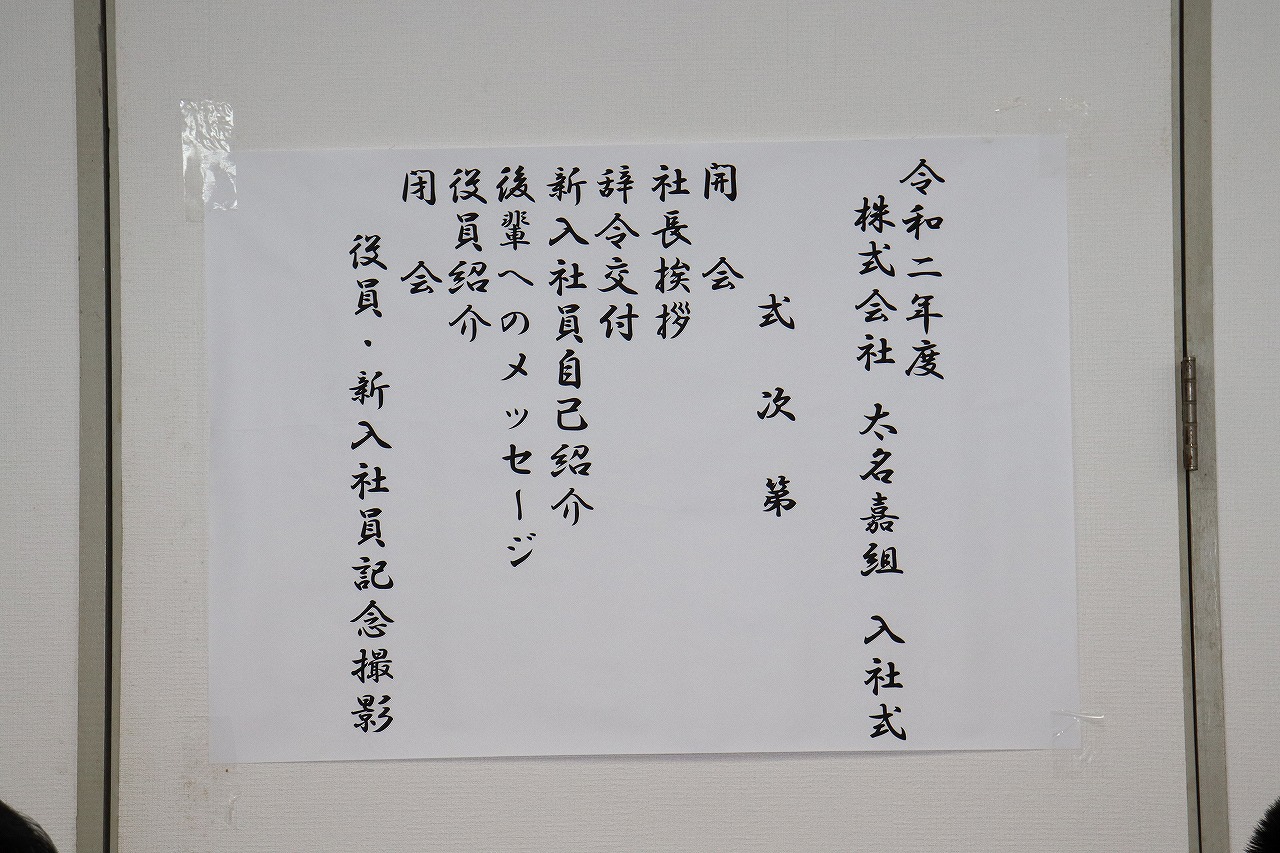 令和二年度
株式会社 太名嘉組 入社式
式次第
開会
社長挨拶
辞令交付
新入社員自己紹介
後輩へのメッセージ
役員紹介
閉会
役員・新入社員記念撮影